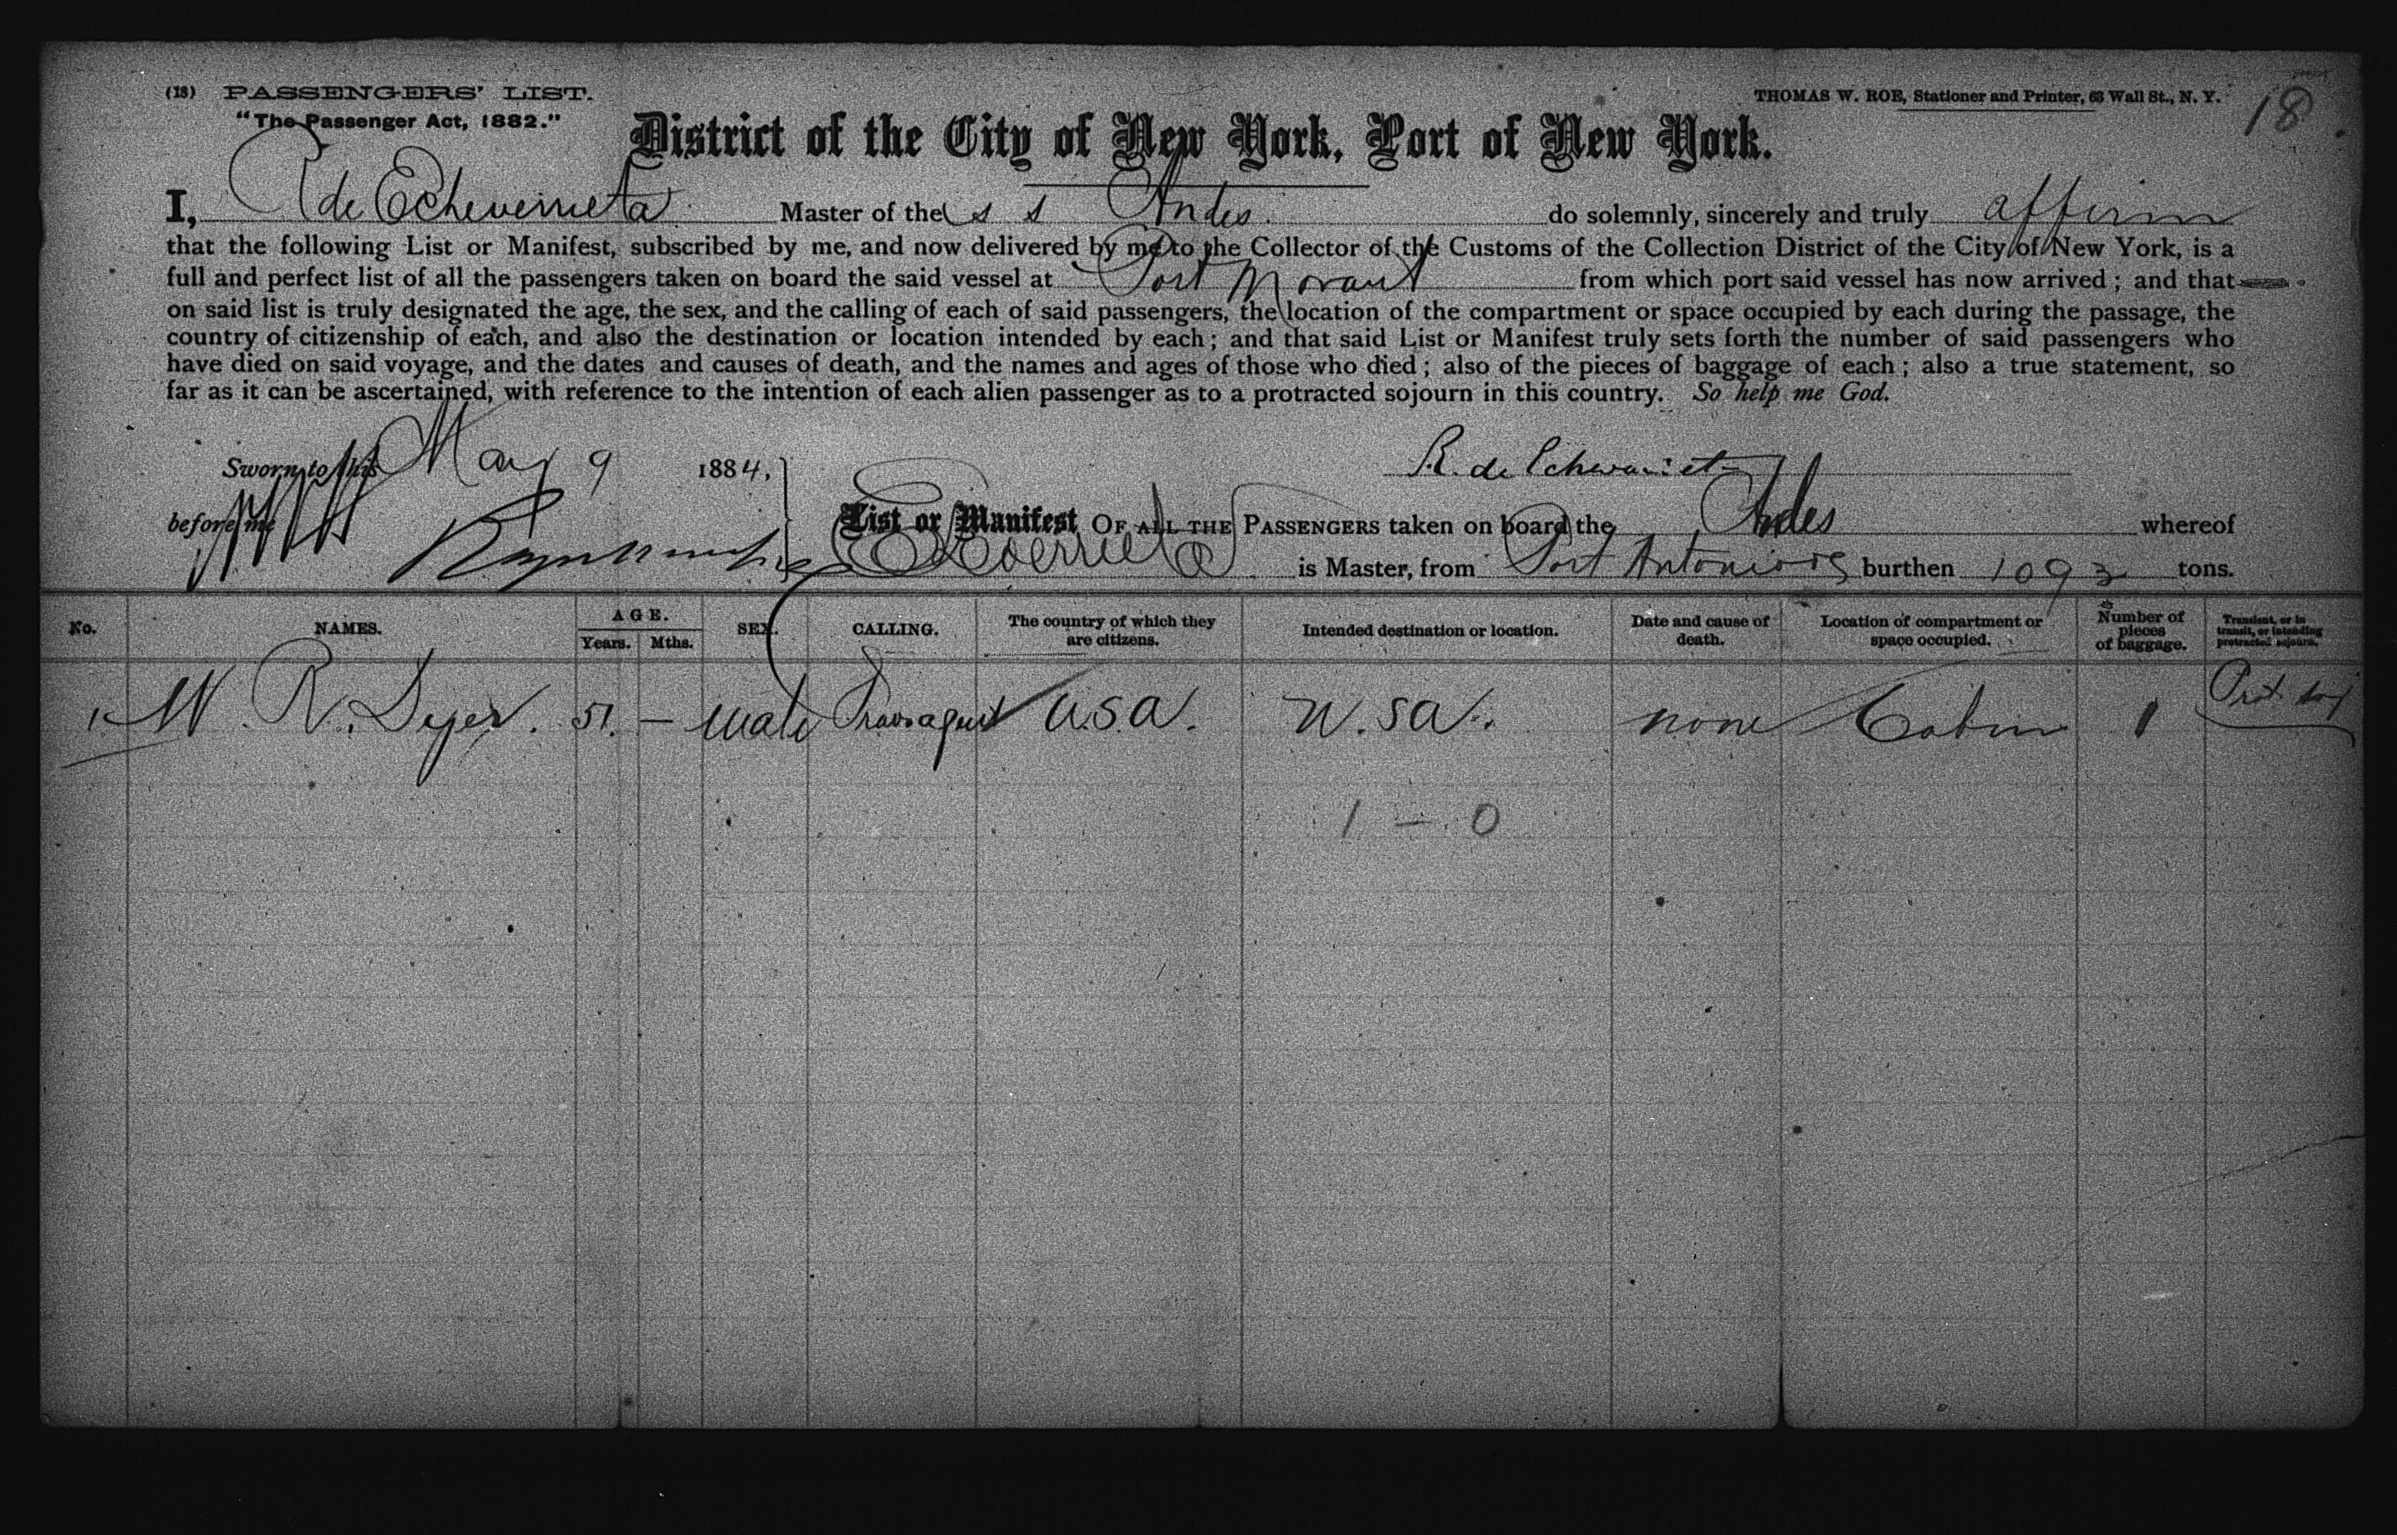 (18) PASSENGERS' LIST.
"The Passenger Act, 1882."
THOMAS W. ROE, Stationer and Printer, 63 Wall St., N. Y.
18
District of the City of New York, Port of New York.
I, R de Echeverrieta Master of the S S Andes. do solemnly, sincerely and truly affirm
that the following List or Manifest, subscribed by me, and now delivered by me to the Collector of the Customs of the Collection District of the City of New York, is a
full and perfect list of all the passengers taken on board the said vessel at Port Morant from which port said vessel has now arrived; and that
on said list is truly designated the age, the sex, and the calling of each of said passengers, the location of the compartment or space occupied by each during the passage, the
country of citizenship of each, and also the destination or location intended by each; and that said List or Manifest truly sets forth the number of said passengers who
have died on said voyage, and the dates and causes of death, and the names and ages of those who died; also of the pieces of baggage of each; also a true statement, so
far as it can be ascertained, with reference to the intention of each alien passenger as to a protracted sojourn in this country. So help me God.
Sworn to this May 9 1884,
R. de
before me
List or Manifest OF ALL THE PASSENGERS taken on board the Andes whereof
is Master, from Port Antonio burthen 1093 tons.
No. NAMES. AGE. Years. Mths. SEX. CALLING. The country of which they are citizens. Intended destination or location. Date and cause of death. Location of compartment or space occupied. Number of pieces of baggage. Transient, or in transit, or intending protracted sojourn.
1 W. R. Dyer. 51. — male U.S.A. U.S.A. none Cabin 1 Prt. soj
1 — 0